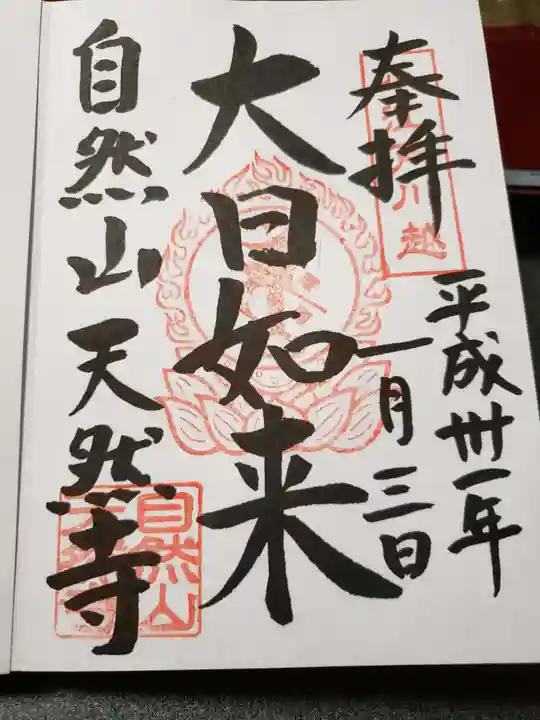 奉拝
川越
平成卅一年
一月三日
大日如来
自然山天然寺
自然山
天然寺